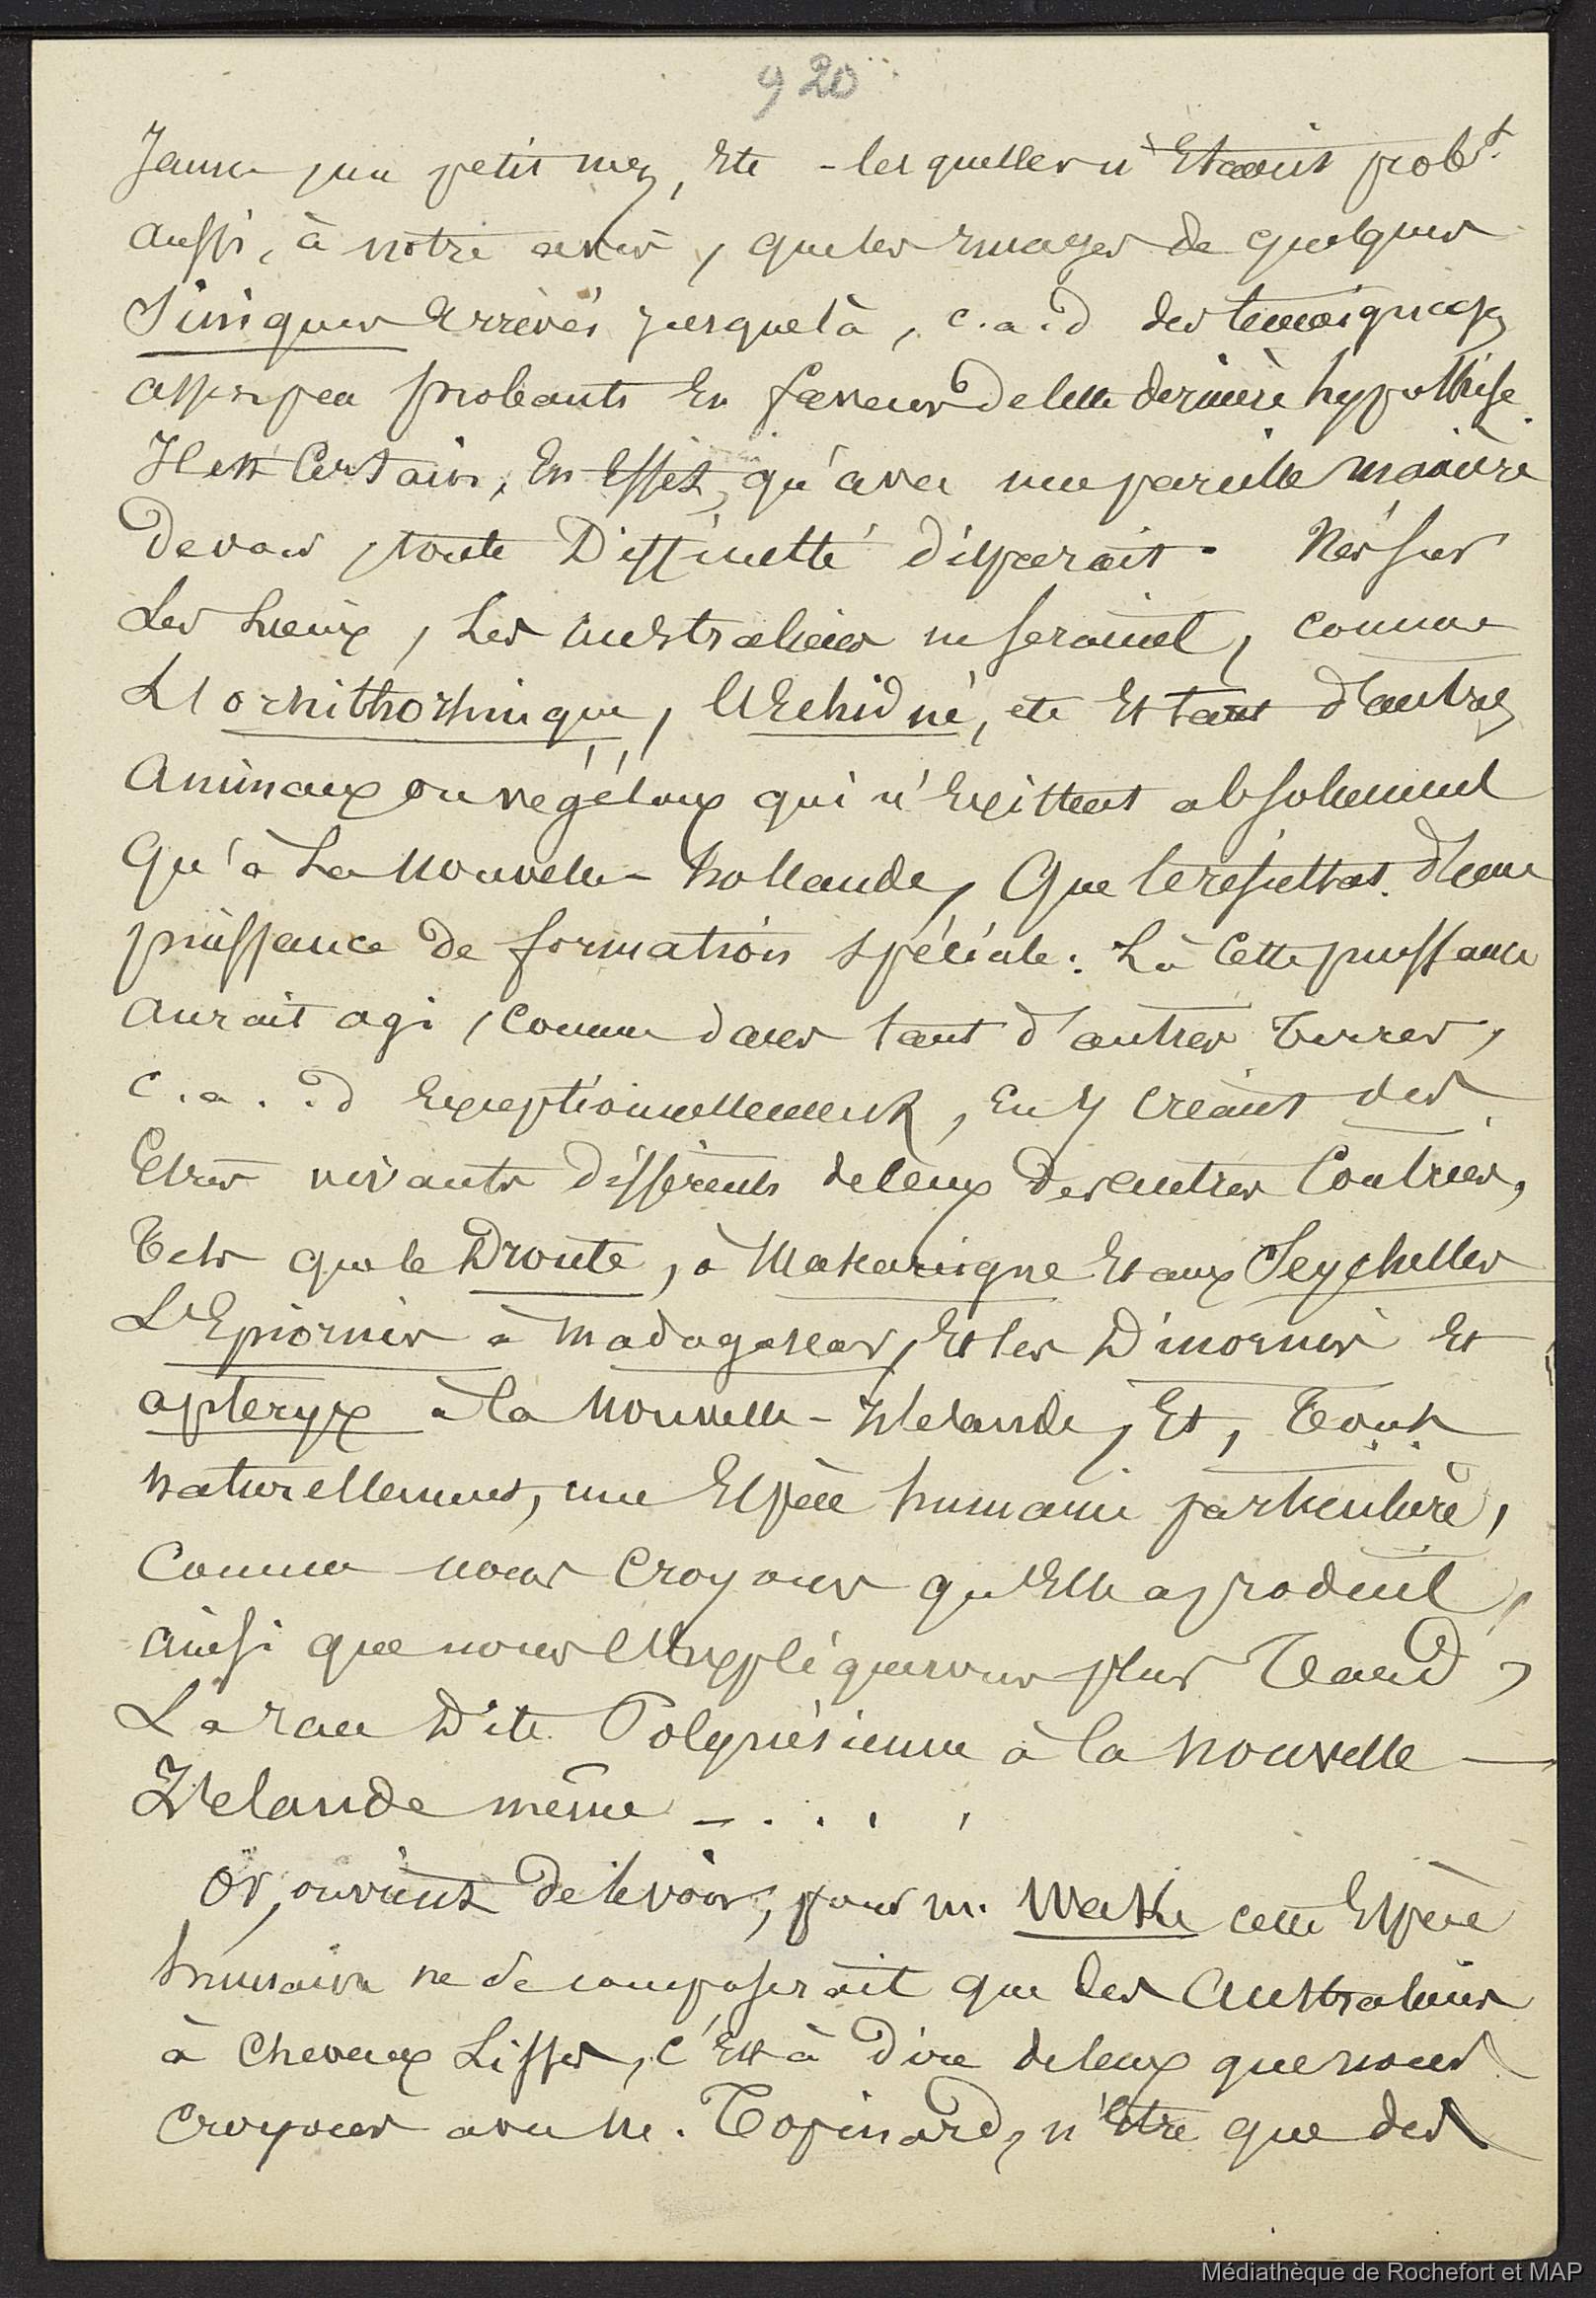 920
Jaune, un petit nez, etc - lesquelles n'étaient probt.
aussi, à notre avis, que les images de quelques
Siniques arrivés jusque là, c.a.d des témoignages
assez peu probants en faveur de cette dernière hypothèse.
Il est certain, en effet, qu'avec une pareille manière
de voir, toute difficulté disparait. Nés sur
les lieux, les australiens ne seraient, comme
L'ornithorhinque, l'Echidné, etc et tant d'autres
animaux ou végétaux qui n'existent absolument
qu'à la Nouvelle-hollande, que le résultat d'une
puissance de formation spéciale. Là cette puissance
aurait agi, comme dans tant d'autres terres,
c.a.d exceptionnellement, en y créant des
Etres vivants différents de ceux des autres contrées,
Tels que le Dronte, à Maskareigne et aux Seychelles
L'Epiornis à Madagascar, et les Dinornis et
apteryx à la Nouvelle-Zélande, et, tout
naturellement, une Espèce humaine particulière,
Comme nous croyons qu'Elle a produit,
ainsi que nous l'expliquerons plus tard,
La race dite Polynésienne à la nouvelle-
Zélande même - . . . .
Or, on vient de le voir, pour M. cette Espèce
humaine ne se composerait que des Australiens
à cheveux Lisses, c'est à dire de ceux que nous
croyons avec M. Topinard, n'être que des
Médiathèque de Rochefort et MAP